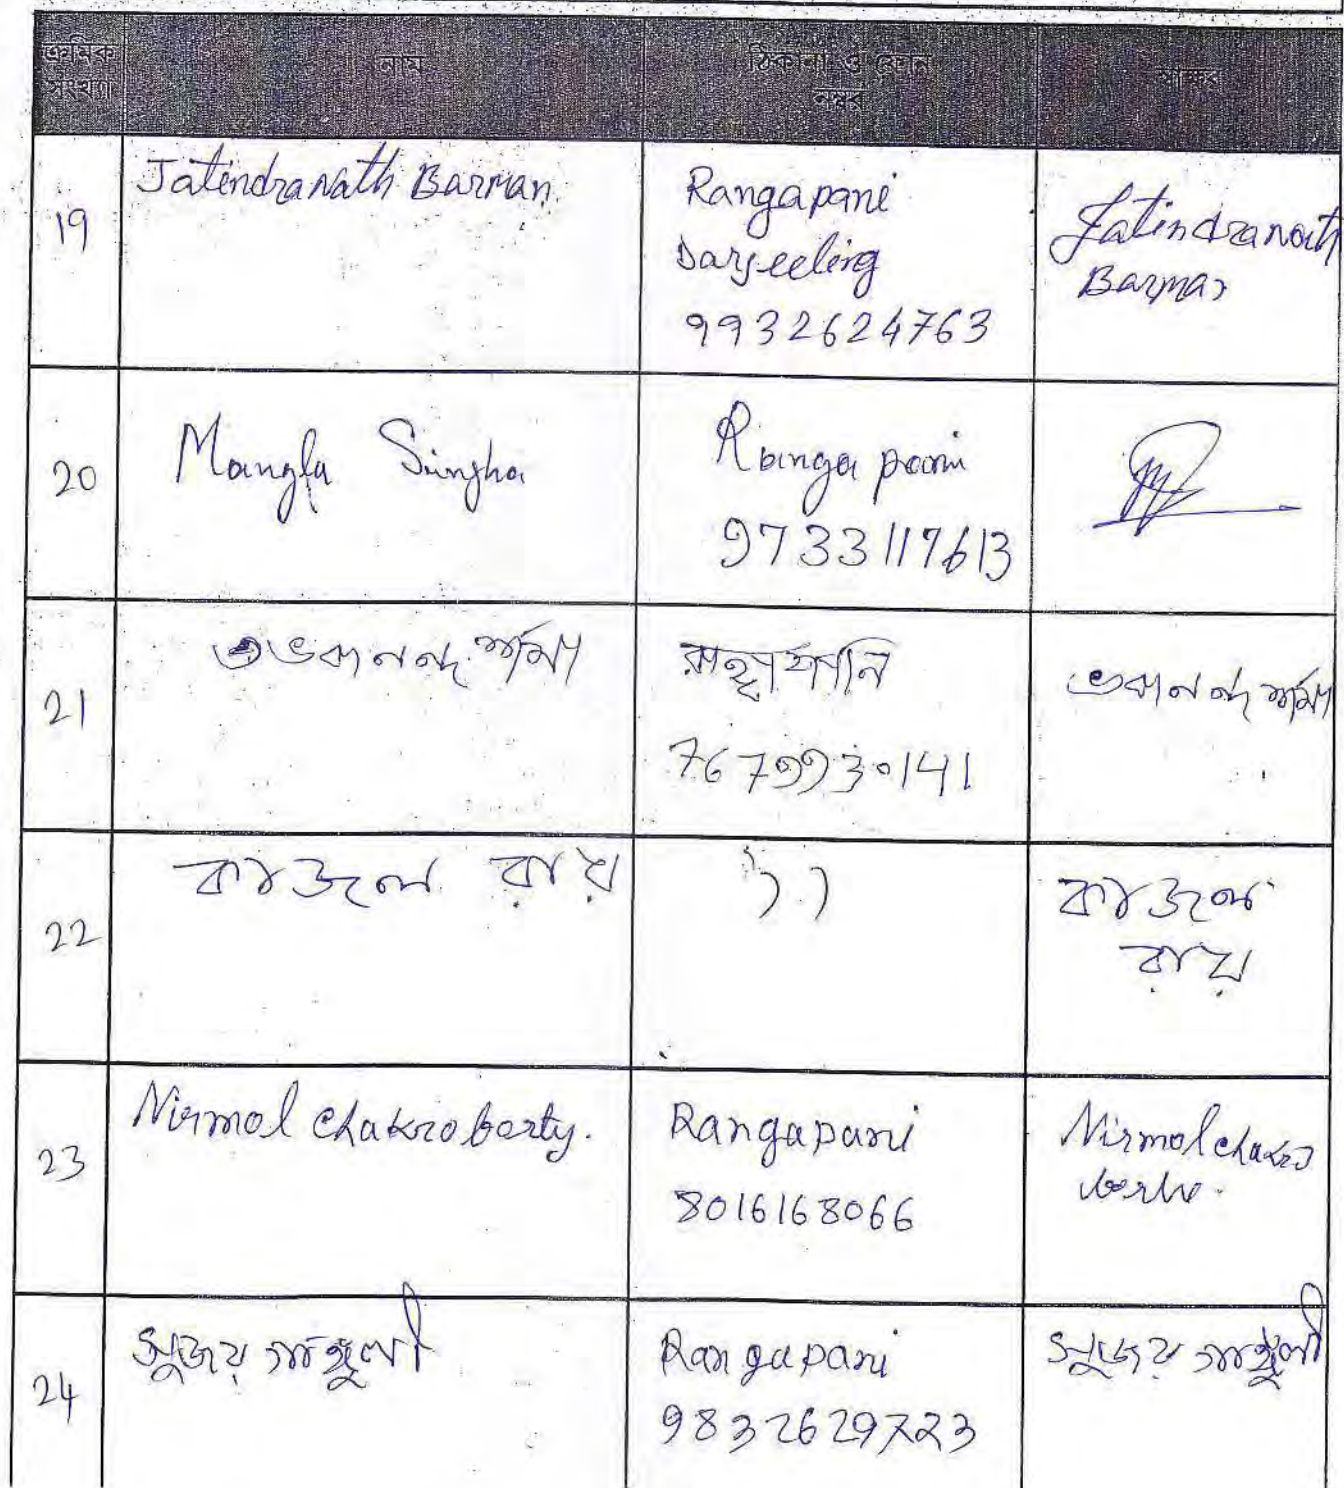 ক্রমিক
সংখ্যা
নাম
ঠিকানা ও ফোন
নম্বর
স্বাক্ষর
19
Jatindranath Barman
Rangapani
Darjeeling
9932624763
Jatindranath
Barman
20
Mangla Singha
Rangapani
9733117613
21
ভবানন্দ শর্মা
রাঙ্গাপানি
7679930141
ভবানন্দ শর্মা
22
কাজল রায়
কাজল
রায়
23
Nirmol Chakroborty.
Rangapani
8016168066
Nirmol chakro
24
সুজয় গাঙ্গুলী
Rangapani
9832629723
সুজয় গাঙ্গুলী